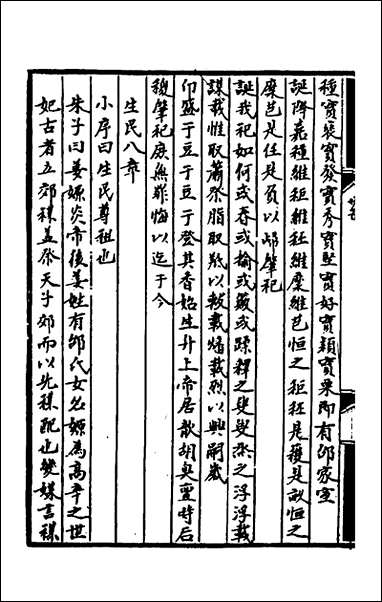 種實褎實發實秀實堅實好實穎實栗即有邰家室
誕降嘉種維秬維秠維穈維芑恒之秬秠是穫是畝恒之
穈芑是任是負以歸肇祀
誕我祀如何或舂或揄或簸或蹂釋之叟叟烝之浮浮載
謀載惟取蕭祭脂取羝以軷載燔載烈以興嗣歲
卬盛于豆于豆于登其香始升上帝居歆胡臭亶時后
稷肇祀庶無罪悔以迄于今
生民八章
小序曰生民尊祖也
朱子曰姜嫄炎帝後姜姓有邰氏女名嫄為高辛之世
妃古者立郊禖蓋祭天于郊而以先禖配也變媒言禖